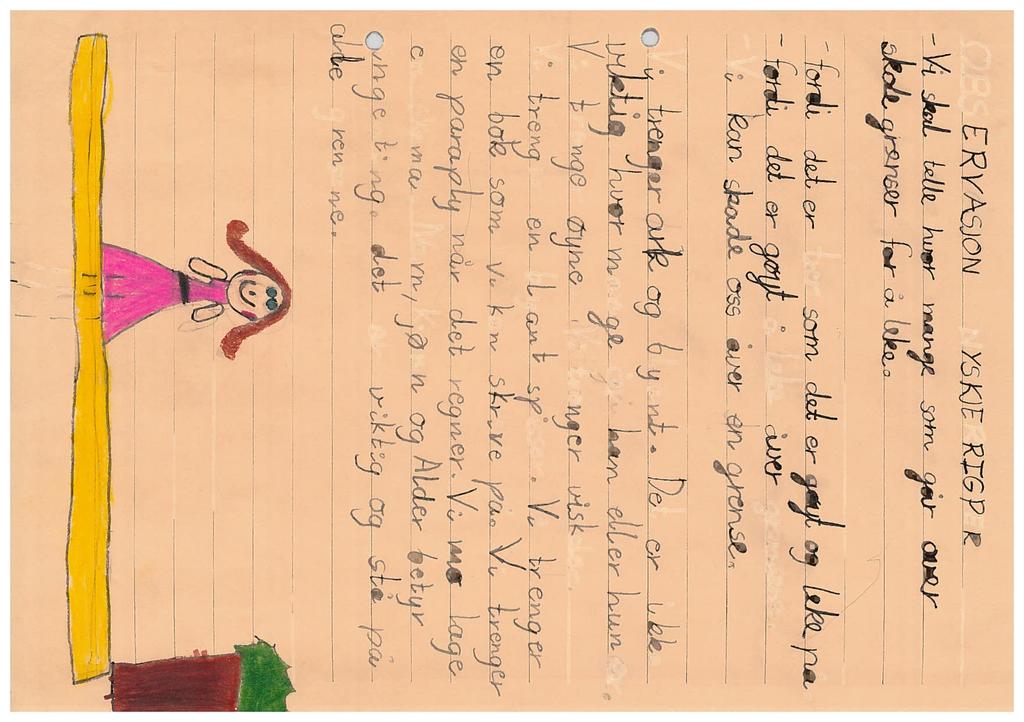 OBSERVASJON NYSKJERIGPER
- Vi skal telle hvor mange som går åver
skole grenser for å leke.
- fordi det er som det er gøyt og leke på
- fordi det er gøyt å leke åver grensene.
- Vi kan skade oss åver en grense.
Vi trenger ark og blyant. Det er ikke
viktig hvor mange han eller hun er.
Vi trenge øyne. Vi trenger visk
Vi trenger en blant spisser. Vi trenger
en bok som vi kan skrive på. Vi trenger
en paraply når det regner. Vi må lage
skjema. Navn, kjønn og Alder betyr
inge ting. det er viktig og stå på
alle grensene.